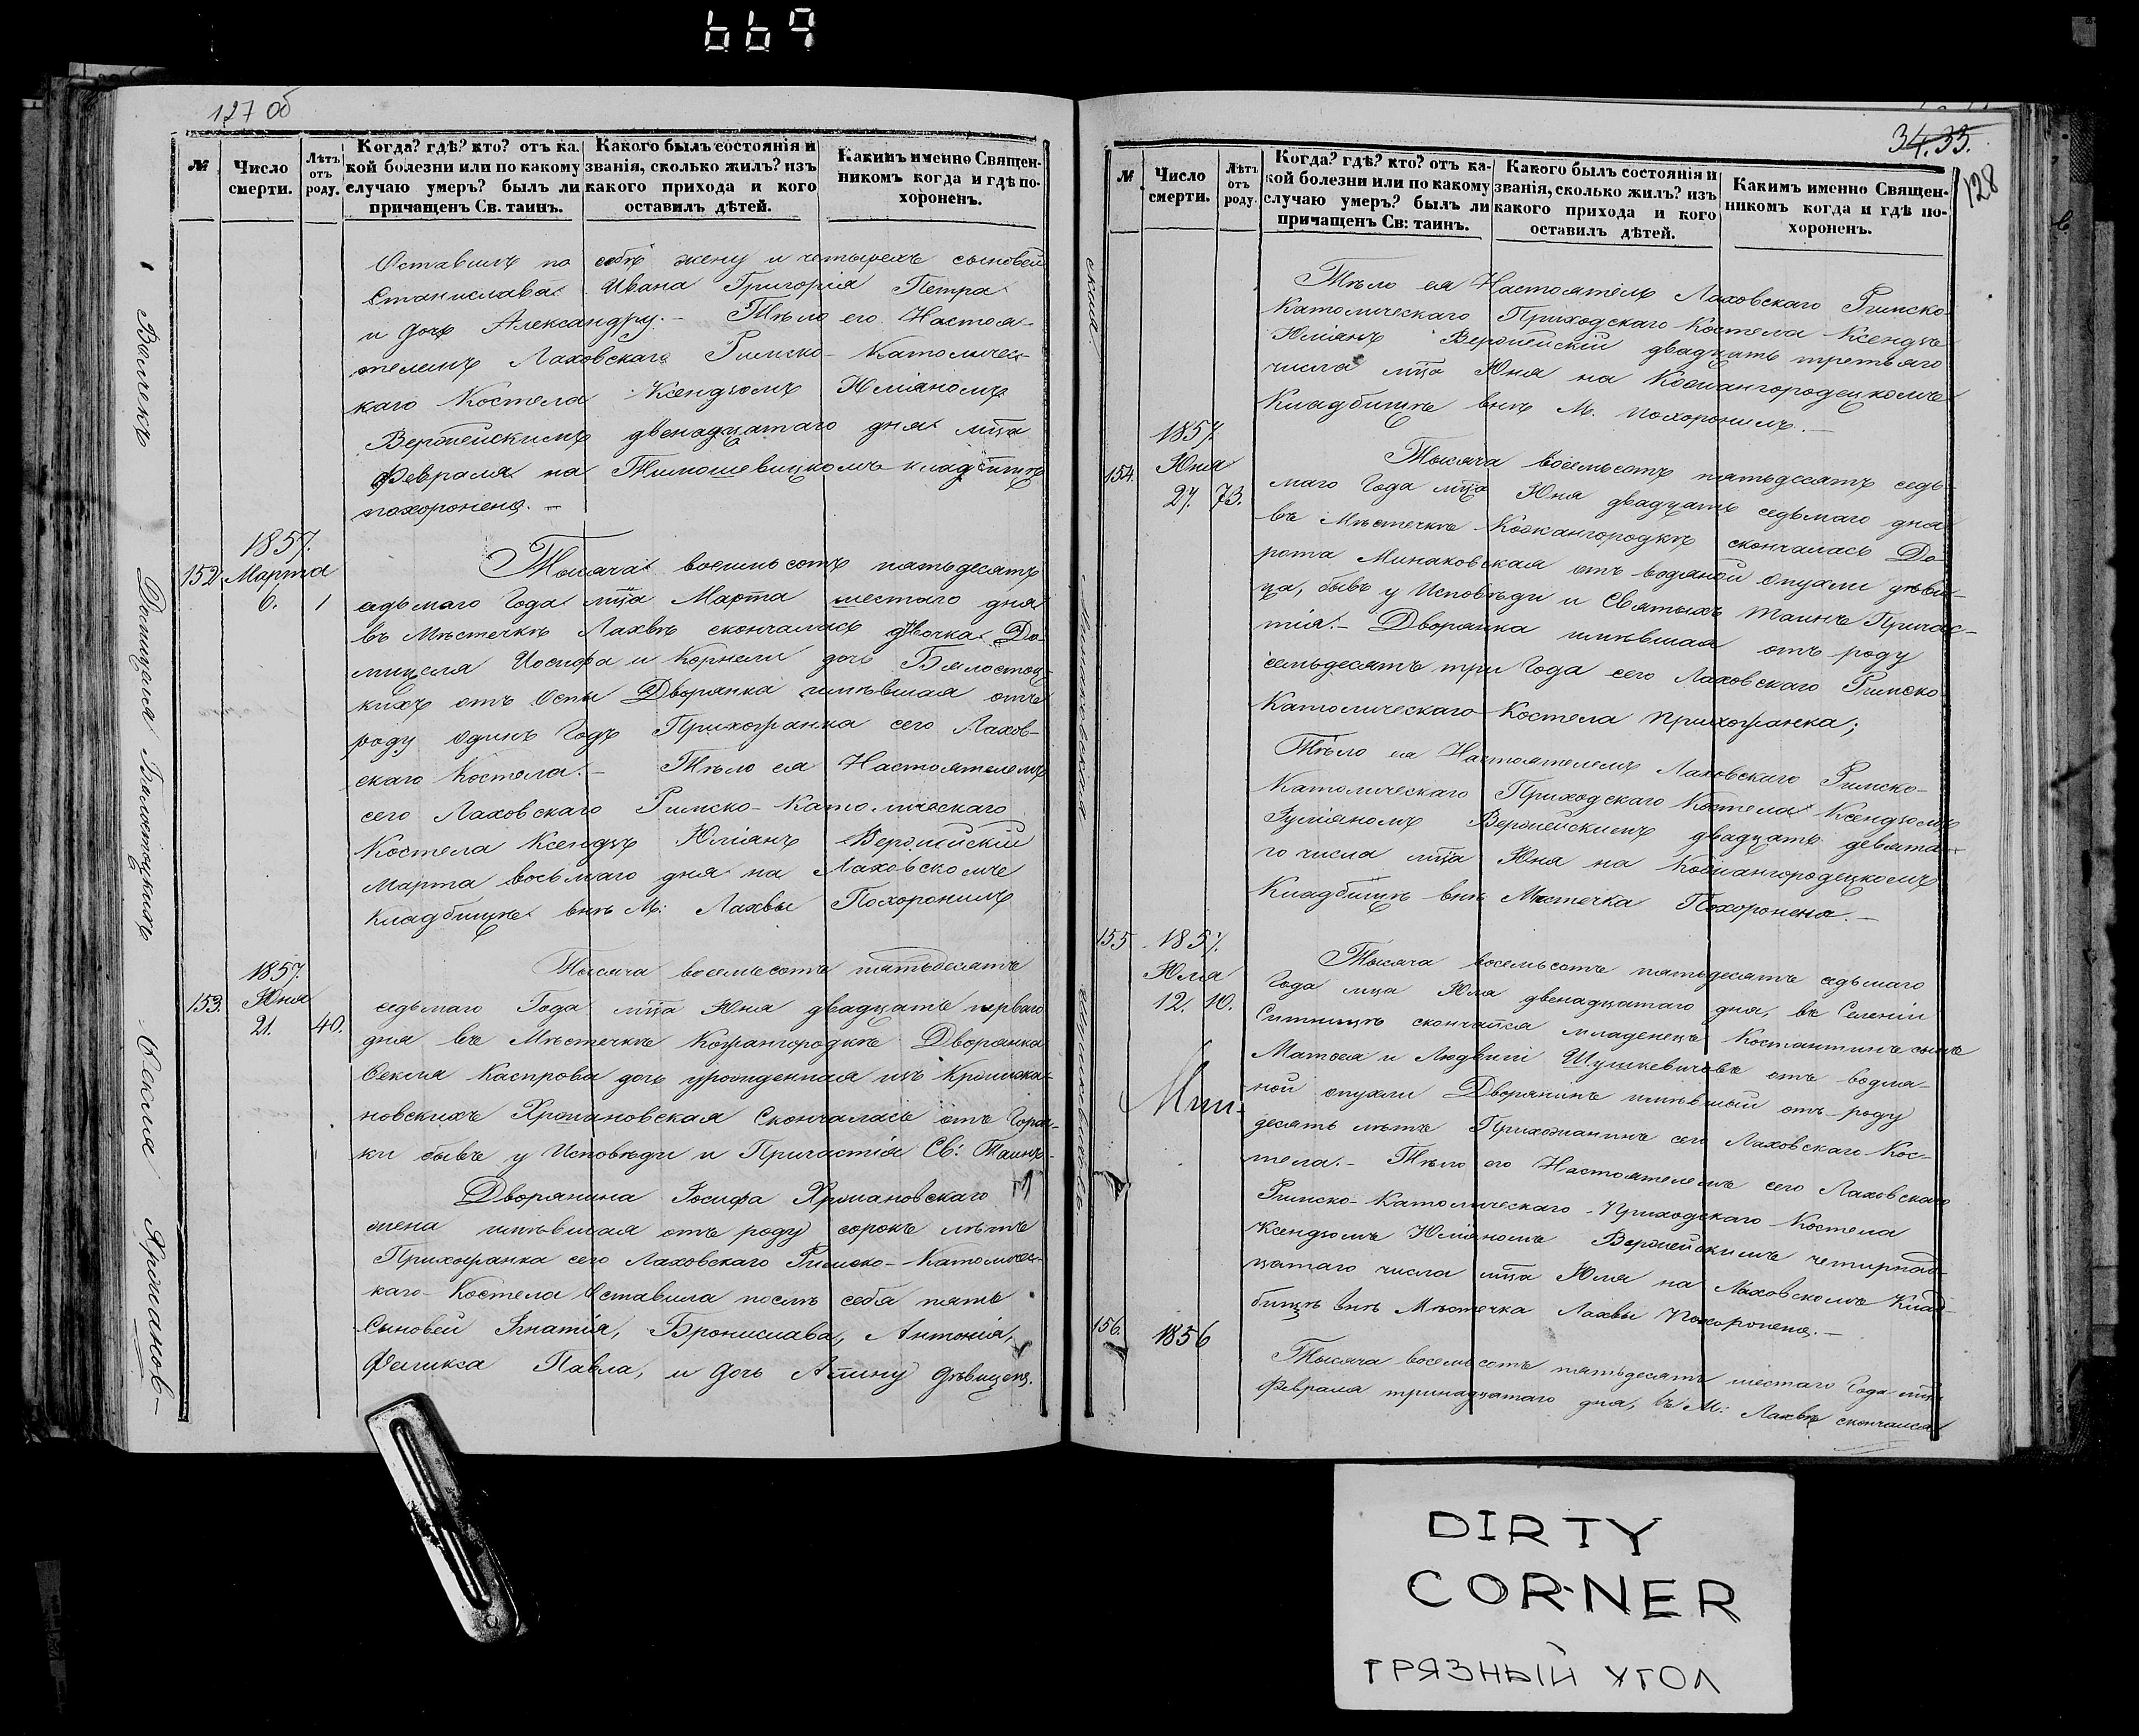 667
127 об
№
Число смерти.
Лѣтъ отъ роду.
Когда? гдѣ? кто? отъ ка-
кой болезни или по какому
случаю умеръ? былъ ли
причащенъ Св. таинъ.
Какого былъ состоянія и
званія, сколько жилъ? изъ
какого прихода и кого
оставилъ дѣтей.
Какимъ именно Священ-
никомъ когда и гдѣ по-
хороненъ.
Оставилъ по себѣ жену и четырехъ сыновей
Станислава Ивана Григорія Петра
и дочь Александру. – Тѣло его Настоя-
телемъ Лаховскаго Римско-Католичес-
каго Костела Ксендзомъ Юліаномъ
Вержейскимъ двенадцатаго дня мца
Февраля на Тимошевицкомъ кладбищѣ
похоронено. –
1857.
152. Марта
6. 1
Тысяча восемьсотъ пятьдесятъ
седьмаго Года мца Марта шестаго дня
въ Мѣстечкѣ Лахвѣ скончалась дѣвочка До-
мицеля Іосифа и Корнели дочь Бялостоц-
кихъ отъ Оспы Дворянка имѣвшая отъ
роду одинъ Годъ Прихожанка сего Лахов-
скаго Костела. – Тѣло ея Настоятелемъ
сего Лаховскаго Римско-Католическаго
Костела Ксендзъ Юліанъ Вержейскій
Марта восьмаго дня на Лаховскомъ
Кладбищѣ внѣ М: Лахвы Похоронилъ
Домицеля Бялостоцкихъ
1857.
153. Юня
21. 40.
Тысяча восемьсотъ пятьдесятъ
седьмаго Года мца Юня двадцать перваго
дня въ Мѣстечкѣ Кожангородкѣ Дворянка
Фекля Каспрова дочь урожденная изъ
новскихъ Хрмановская Скончалась отъ Горяч-
ки бывъ у Исповѣди и Причастія Св: Таинъ.
Дворянина Іосифа Хрмановскаго
жена имѣвшая отъ роду сорокъ лѣтъ
Прихожанка сего Лаховскаго Римско-Католичес-
каго Костела оставила послѣ себя пять
Сыновей Игнатія, Бронислава, Антонія,
Феликса Павла, и дочь Алину дѣвицею.
34.33.
128
№
Число смерти.
Лѣтъ отъ роду
Когда? гдѣ? кто? отъ ка-
кой болезни или по какому
случаю умеръ? былъ ли
причащенъ Св: таинъ.
Какого былъ состоянія и
званія, сколько жилъ? изъ
какого прихода и кого
оставилъ дѣтей.
Какимъ именно Священ-
никомъ когда и гдѣ по-
хороненъ.
ская.
Тѣло ея Настоятель Лаховскаго Римско-
Католическаго Приходскаго Костела Ксендзъ
Юліанъ Вержейскій двадцать третьяго
числа мца Юня на Кожангородецкомъ
Кладбищѣ внѣ М. похоронилъ. –
1857.
154. Юня
27. 73.
Тысяча восемьсотъ пятьдесятъ седь-
маго Года мца Юня двадцать седьмаго дня
въ Мѣстечкѣ Кожангородкѣ скончалась До-
рота Минаковская отъ водяной опухли дѣви-
ца, бывъ у Исповѣди и Святыхъ Таинъ Причас-
тія. – Дворянка имѣвшая отъ роду
семьдесятъ три Года сего Лаховскаго Римско-
Католическаго Костела прихожанка;
Тѣло ея Настоятелемъ Лаховскаго Римско-
Католическаго Приходскаго Костела Ксендзомъ
Юліяномъ Вержейскимъ двадцать девята-
го числа мца Юня на Кожангородецкомъ
Кладбищѣ внѣ Мѣстечка Похоронена. –
Минаковская
155 1857.
Юля
12. 10.
Тысяча восемьсотъ пятьдесятъ седьмаго
Года мца Юля двенадцатаго дня, въ Селеніи
Ситницѣ скончался младенецъ Костантинъ сынъ
Матвея и Людвіги Шушкевичовъ отъ водя-
ной опухли Дворянинъ имѣвшій отъ роду
десять лѣтъ Прихожанинъ сего Лаховскаго Кос-
тела. – Тѣло его Настоятелемъ сего Лаховскаго
Римско-Католическаго Приходскаго Костела
Ксендзомъ Юліяномъ Вержейскимъ четирнад-
цатаго числа мца Юля на Лаховскомъ Клад-
бищѣ внѣ Мѣстечка Лахвы Похоронено. –
156. 1856
Тысяча восемьсотъ пятьдесятъ шестаго Года мца
Февраля тринадцатаго дня, въ М: Лахвѣ скончался
DIRTY
CORNER
ГРЯЗНЫЙ УГОЛ